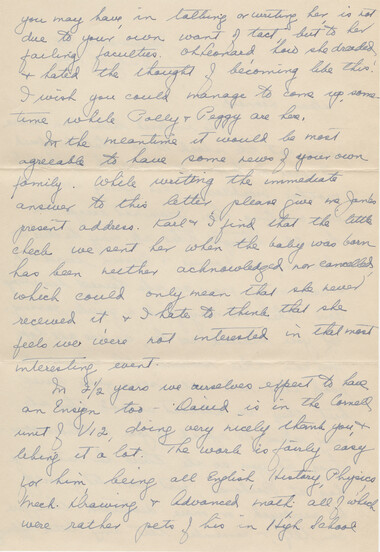 you may have in talking or writing her is not
due to your own want of tact but to her
failing faculties. Oh Leonard how she dreaded
& hated the thought of becoming like this.
I wish you could manage to come up some-
time while Polly & Peggy are here.
In the meantime it would be most
agreeable to have some news of your own
family. While writing the immediate
answer to this letter please give me Jane's
present address. Karl & I find that the little
check we sent her when the baby was born
has been neither acknowledged nor cancelled,
which could only mean that she never
received it & I hate to think that she
feels we were not interested in that most
interesting event.
In 2½ years we ourselves expect to have
an Ensign too - David is in the Cornell
unit of V12, doing very nicely thank you &
liking it a lot. The work is fairly easy
for him being all English, History, Physics
Mech. Drawing & Advanced math, all of which
were rather pets of his in High School